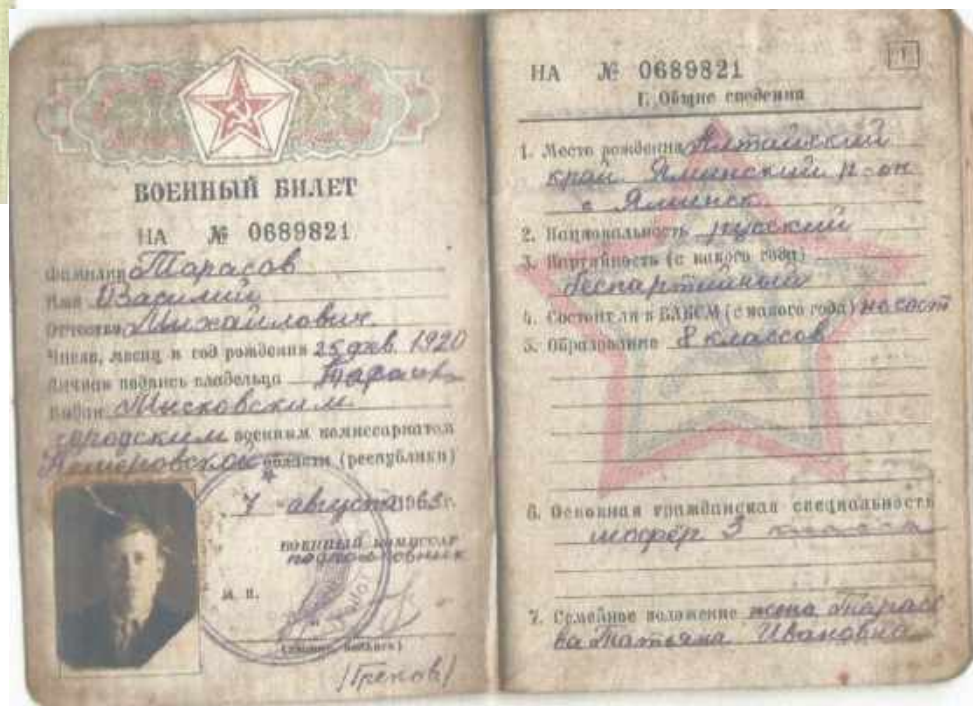 ВОЕННЫЙ БИЛЕТ
НА № 0689821
Фамилия Тарасов
Имя Василий
Отчество Михайлович
Число, месяц и год рождения 25 1920
Личная подпись владельца
Выдан Мысковским
городским военным комиссариатом
Кемеровской области (республики)
7 августа 1963 г.
ВОЕННЫЙ КОМИССАР
подполковник
М. П.
/Греков/
1
НА № 0689821
I. Общие сведения
1. Место рождения Алтайский
край р-он
с
2. Национальность русский
3. Партийность (с какого года)
беспартийный
4. Состоит ли в ВЛКСМ (с какого года) не сост
5. Образование 8 классов
6. Основная гражданская специальность
шофер 3 класса
7. Семейное положение жена Тарасо
ва Татьяна Ивановна